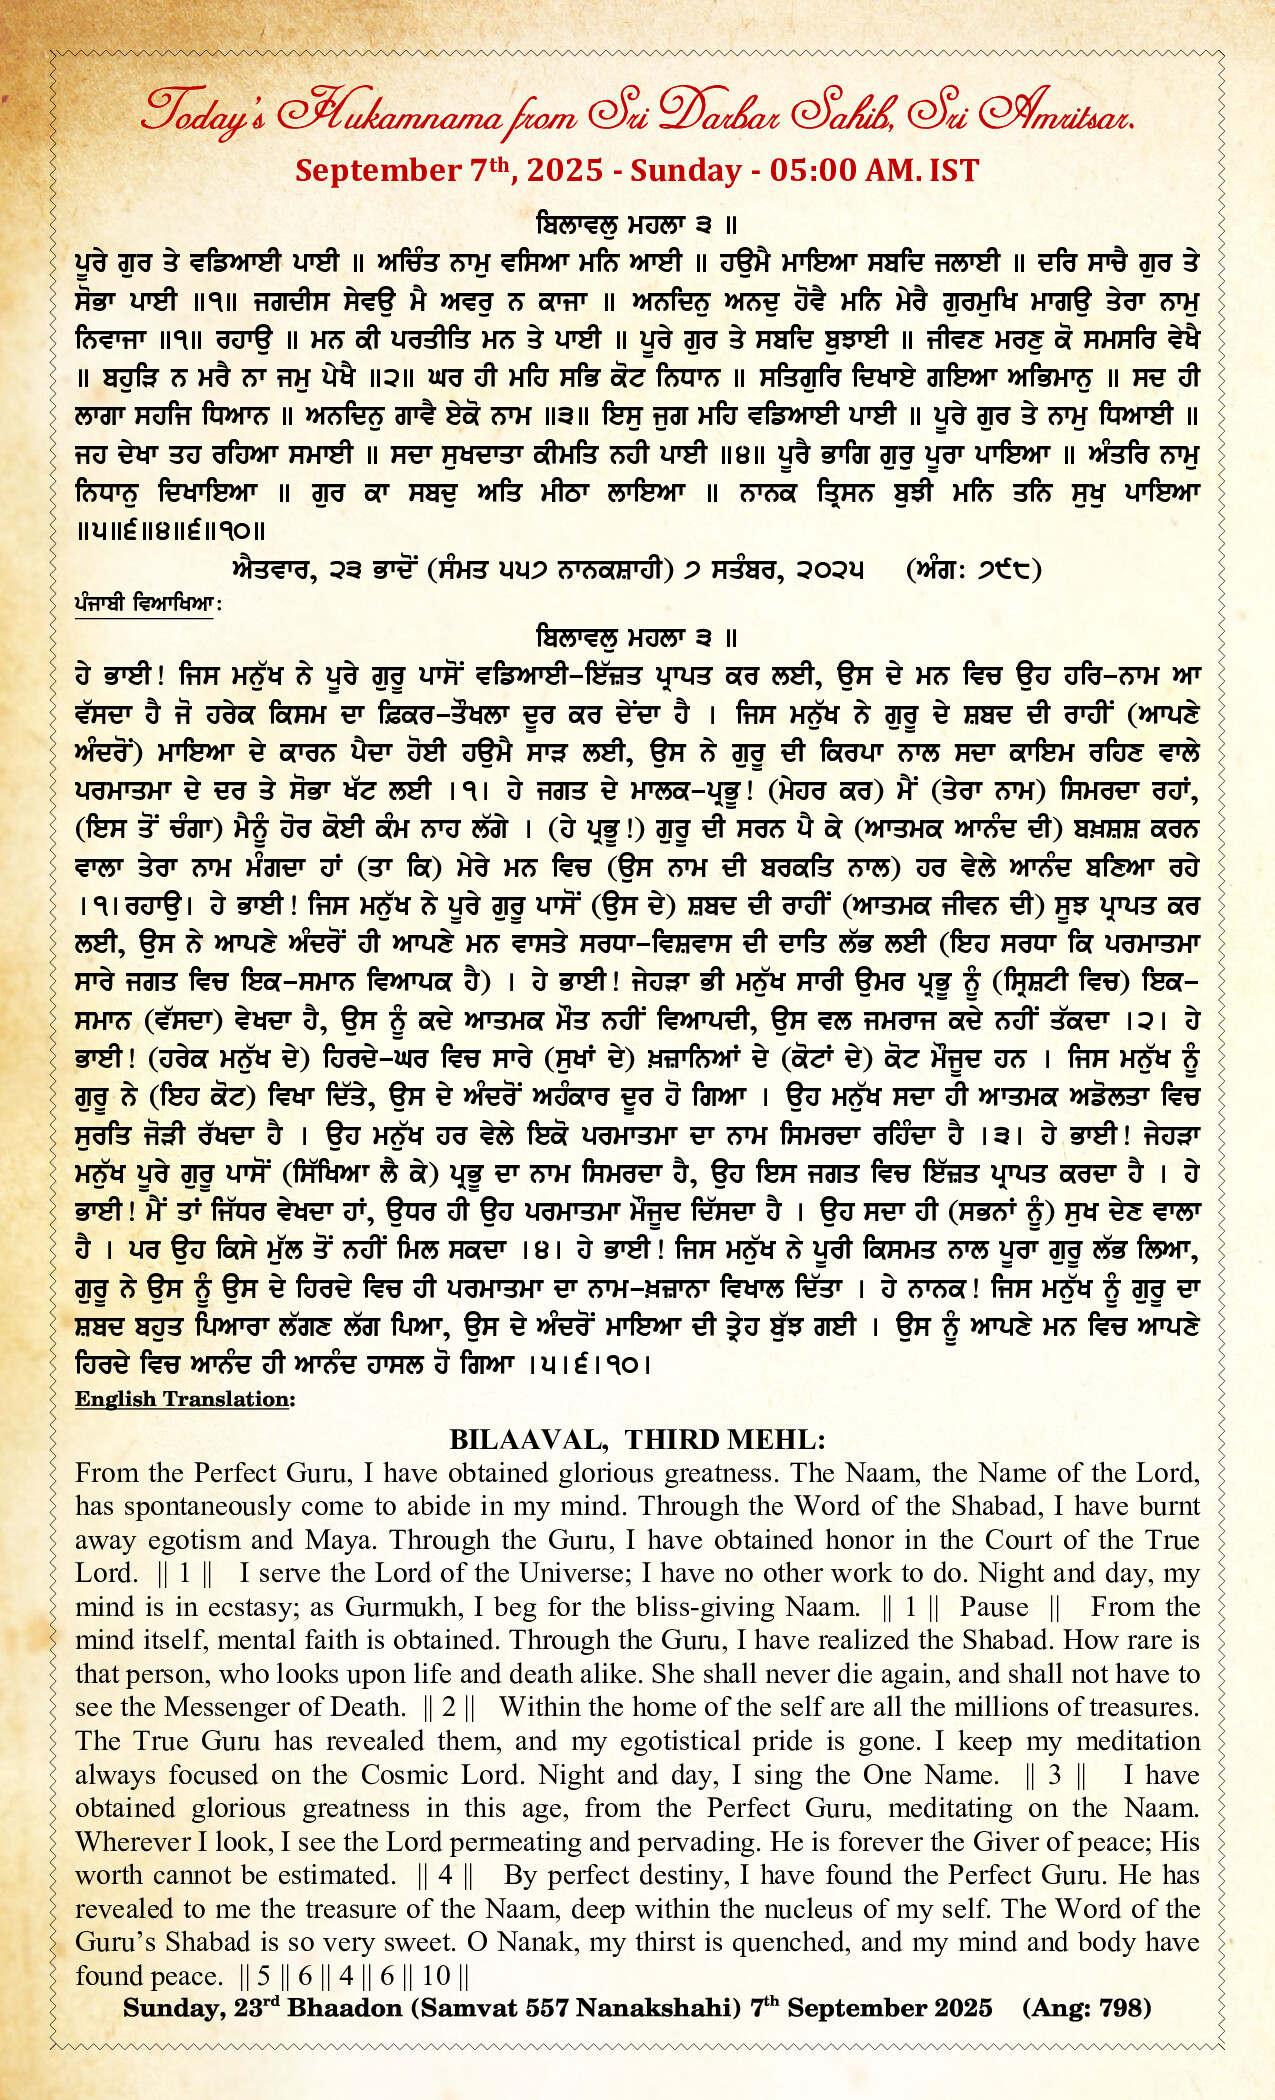 Today's Hukamnama from Sri Darbar Sahib, Sri Amritsar.
September 7th, 2025 - Sunday - 05:00 AM. IST
ਬਿਲਾਵਲੁ ਮਹਲਾ ੩ ॥
ਪੂਰੇ ਗੁਰ ਤੇ ਵਡਿਆਈ ਪਾਈ ॥ ਅਚਿੰਤ ਨਾਮੁ ਵਸਿਆ ਮਨਿ ਆਈ ॥ ਹਉਮੈ ਮਾਇਆ ਸਬਦਿ ਜਲਾਈ ॥ ਦਰਿ ਸਾਚੈ ਗੁਰ ਤੇ
ਸੋਭਾ ਪਾਈ ॥੧॥ ਜਗਦੀਸ ਸੇਵਉ ਮੈ ਅਵਰੁ ਨ ਕਾਜਾ ॥ ਅਨਦਿਨੁ ਅਨਦੁ ਹੋਵੈ ਮਨਿ ਮੇਰੈ ਗੁਰਮੁਖਿ ਮਾਗਉ ਤੇਰਾ ਨਾਮੁ
ਨਿਵਾਜਾ ॥੧॥ ਰਹਾਉ ॥ ਮਨ ਕੀ ਪਰਤੀਤਿ ਮਨ ਤੇ ਪਾਈ ॥ ਪੂਰੇ ਗੁਰ ਤੇ ਸਬਦਿ ਬੁਝਾਈ ॥ ਜੀਵਣ ਮਰਣੁ ਕੋ ਸਮਸਰਿ ਵੇਖੈ
॥ ਬਹੁੜਿ ਨ ਮਰੈ ਨਾ ਜਮੁ ਪੇਖੈ ॥੨॥ ਘਰ ਹੀ ਮਹਿ ਸਭਿ ਕੋਟ ਨਿਧਾਨ ॥ ਸਤਿਗੁਰਿ ਦਿਖਾਏ ਗਇਆ ਅਭਿਮਾਨੁ ॥ ਸਦ ਹੀ
ਲਾਗਾ ਸਹਜਿ ਧਿਆਨ ॥ ਅਨਦਿਨੁ ਗਾਵੈ ਏਕੋ ਨਾਮ ॥੩॥ ਇਸੁ ਜੁਗ ਮਹਿ ਵਡਿਆਈ ਪਾਈ ॥ ਪੂਰੇ ਗੁਰ ਤੇ ਨਾਮੁ ਧਿਆਈ ॥
ਜਹ ਦੇਖਾ ਤਹ ਰਹਿਆ ਸਮਾਈ ॥ ਸਦਾ ਸੁਖਦਾਤਾ ਕੀਮਤਿ ਨਹੀ ਪਾਈ ॥੪॥ ਪੂਰੈ ਭਾਗਿ ਗੁਰੁ ਪੂਰਾ ਪਾਇਆ ॥ ਅੰਤਰਿ ਨਾਮੁ
ਨਿਧਾਨੁ ਦਿਖਾਇਆ ॥ ਗੁਰ ਕਾ ਸਬਦੁ ਅਤਿ ਮੀਠਾ ਲਾਇਆ ॥ ਨਾਨਕ ਤ੍ਰਿਸਨ ਬੁਝੀ ਮਨਿ ਤਨਿ ਸੁਖੁ ਪਾਇਆ
॥੫॥੬॥੪॥੬॥੧੦॥
ਐਤਵਾਰ, ੨੩ ਭਾਦੋਂ (ਸੰਮਤ ੫੫੭ ਨਾਨਕਸ਼ਾਹੀ) ੭ ਸਤੰਬਰ, ੨੦੨੫ (ਅੰਗ: ੭੯੮)
ਪੰਜਾਬੀ ਵਿਆਖਿਆ:
ਬਿਲਾਵਲੁ ਮਹਲਾ ੩ ॥
ਹੇ ਭਾਈ! ਜਿਸ ਮਨੁੱਖ ਨੇ ਪੂਰੇ ਗੁਰੂ ਪਾਸੋਂ ਵਡਿਆਈ-ਇੱਜ਼ਤ ਪ੍ਰਾਪਤ ਕਰ ਲਈ, ਉਸ ਦੇ ਮਨ ਵਿਚ ਉਹ ਹਰਿ-ਨਾਮ ਆ
ਵੱਸਦਾ ਹੈ ਜੋ ਹਰੇਕ ਕਿਸਮ ਦਾ ਫ਼ਿਕਰ-ਤੌਖਲਾ ਦੂਰ ਕਰ ਦੇਂਦਾ ਹੈ । ਜਿਸ ਮਨੁੱਖ ਨੇ ਗੁਰੂ ਦੇ ਸ਼ਬਦ ਦੀ ਰਾਹੀਂ (ਆਪਣੇ
ਅੰਦਰੋਂ) ਮਾਇਆ ਦੇ ਕਾਰਨ ਪੈਦਾ ਹੋਈ ਹਉਮੈ ਸਾੜ ਲਈ, ਉਸ ਨੇ ਗੁਰੂ ਦੀ ਕਿਰਪਾ ਨਾਲ ਸਦਾ ਕਾਇਮ ਰਹਿਣ ਵਾਲੇ
ਪਰਮਾਤਮਾ ਦੇ ਦਰ ਤੇ ਸੋਭਾ ਖੱਟ ਲਈ ।੧। ਹੇ ਜਗਤ ਦੇ ਮਾਲਕ-ਪ੍ਰਭੂ! (ਮੇਹਰ ਕਰ) ਮੈਂ (ਤੇਰਾ ਨਾਮ) ਸਿਮਰਦਾ ਰਹਾਂ,
(ਇਸ ਤੋਂ ਚੰਗਾ) ਮੈਨੂੰ ਹੋਰ ਕੋਈ ਕੰਮ ਨਾਹ ਲੱਗੇ । (ਹੇ ਪ੍ਰਭੂ!) ਗੁਰੂ ਦੀ ਸਰਨ ਪੈ ਕੇ (ਆਤਮਕ ਆਨੰਦ ਦੀ) ਬਖ਼ਸ਼ਸ਼ ਕਰਨ
ਵਾਲਾ ਤੇਰਾ ਨਾਮ ਮੰਗਦਾ ਹਾਂ (ਤਾ ਕਿ) ਮੇਰੇ ਮਨ ਵਿਚ (ਉਸ ਨਾਮ ਦੀ ਬਰਕਤਿ ਨਾਲ) ਹਰ ਵੇਲੇ ਆਨੰਦ ਬਣਿਆ ਰਹੇ
।੧।ਰਹਾਉ। ਹੇ ਭਾਈ! ਜਿਸ ਮਨੁੱਖ ਨੇ ਪੂਰੇ ਗੁਰੂ ਪਾਸੋਂ (ਉਸ ਦੇ) ਸ਼ਬਦ ਦੀ ਰਾਹੀਂ (ਆਤਮਕ ਜੀਵਨ ਦੀ) ਸੂਝ ਪ੍ਰਾਪਤ ਕਰ
ਲਈ, ਉਸ ਨੇ ਆਪਣੇ ਅੰਦਰੋਂ ਹੀ ਆਪਣੇ ਮਨ ਵਾਸਤੇ ਸਰਧਾ-ਵਿਸ਼ਵਾਸ ਦੀ ਦਾਤਿ ਲੱਭ ਲਈ (ਇਹ ਸਰਧਾ ਕਿ ਪਰਮਾਤਮਾ
ਸਾਰੇ ਜਗਤ ਵਿਚ ਇਕ-ਸਮਾਨ ਵਿਆਪਕ ਹੈ) । ਹੇ ਭਾਈ! ਜੇਹੜਾ ਭੀ ਮਨੁੱਖ ਸਾਰੀ ਉਮਰ ਪ੍ਰਭੂ ਨੂੰ (ਸ੍ਰਿਸ਼ਟੀ ਵਿਚ) ਇਕ-
ਸਮਾਨ (ਵੱਸਦਾ) ਵੇਖਦਾ ਹੈ, ਉਸ ਨੂੰ ਕਦੇ ਆਤਮਕ ਮੌਤ ਨਹੀਂ ਵਿਆਪਦੀ, ਉਸ ਵਲ ਜਮਰਾਜ ਕਦੇ ਨਹੀਂ ਤੱਕਦਾ ।੨। ਹੇ
ਭਾਈ! (ਹਰੇਕ ਮਨੁੱਖ ਦੇ) ਹਿਰਦੇ-ਘਰ ਵਿਚ ਸਾਰੇ (ਸੁਖਾਂ ਦੇ) ਖ਼ਜ਼ਾਨਿਆਂ ਦੇ (ਕੋਟਾਂ ਦੇ) ਕੋਟ ਮੌਜੂਦ ਹਨ । ਜਿਸ ਮਨੁੱਖ ਨੂੰ
ਗੁਰੂ ਨੇ (ਇਹ ਕੋਟ) ਵਿਖਾ ਦਿੱਤੇ, ਉਸ ਦੇ ਅੰਦਰੋਂ ਅਹੰਕਾਰ ਦੂਰ ਹੋ ਗਿਆ । ਉਹ ਮਨੁੱਖ ਸਦਾ ਹੀ ਆਤਮਕ ਅਡੋਲਤਾ ਵਿਚ
ਸੁਰਤਿ ਜੋੜੀ ਰੱਖਦਾ ਹੈ । ਉਹ ਮਨੁੱਖ ਹਰ ਵੇਲੇ ਇਕੋ ਪਰਮਾਤਮਾ ਦਾ ਨਾਮ ਸਿਮਰਦਾ ਰਹਿੰਦਾ ਹੈ ।੩। ਹੇ ਭਾਈ! ਜੇਹੜਾ
ਮਨੁੱਖ ਪੂਰੇ ਗੁਰੂ ਪਾਸੋਂ (ਸਿੱਖਿਆ ਲੈ ਕੇ) ਪ੍ਰਭੂ ਦਾ ਨਾਮ ਸਿਮਰਦਾ ਹੈ, ਉਹ ਇਸ ਜਗਤ ਵਿਚ ਇੱਜ਼ਤ ਪ੍ਰਾਪਤ ਕਰਦਾ ਹੈ । ਹੇ
ਭਾਈ! ਮੈਂ ਤਾਂ ਜਿੱਧਰ ਵੇਖਦਾ ਹਾਂ, ਉਧਰ ਹੀ ਉਹ ਪਰਮਾਤਮਾ ਮੌਜੂਦ ਦਿੱਸਦਾ ਹੈ । ਉਹ ਸਦਾ ਹੀ (ਸਭਨਾਂ ਨੂੰ) ਸੁਖ ਦੇਣ ਵਾਲਾ
ਹੈ । ਪਰ ਉਹ ਕਿਸੇ ਮੁੱਲ ਤੋਂ ਨਹੀਂ ਮਿਲ ਸਕਦਾ ।੪। ਹੇ ਭਾਈ! ਜਿਸ ਮਨੁੱਖ ਨੇ ਪੂਰੀ ਕਿਸਮਤ ਨਾਲ ਪੂਰਾ ਗੁਰੂ ਲੱਭ ਲਿਆ,
ਗੁਰੂ ਨੇ ਉਸ ਨੂੰ ਉਸ ਦੇ ਹਿਰਦੇ ਵਿਚ ਹੀ ਪਰਮਾਤਮਾ ਦਾ ਨਾਮ-ਖ਼ਜ਼ਾਨਾ ਵਿਖਾਲ ਦਿੱਤਾ । ਹੇ ਨਾਨਕ! ਜਿਸ ਮਨੁੱਖ ਨੂੰ ਗੁਰੂ ਦਾ
ਸ਼ਬਦ ਬਹੁਤ ਪਿਆਰਾ ਲੱਗਣ ਲੱਗ ਪਿਆ, ਉਸ ਦੇ ਅੰਦਰੋਂ ਮਾਇਆ ਦੀ ਤ੍ਰੇਹ ਬੁੱਝ ਗਈ । ਉਸ ਨੂੰ ਆਪਣੇ ਮਨ ਵਿਚ ਆਪਣੇ
ਹਿਰਦੇ ਵਿਚ ਆਨੰਦ ਹੀ ਆਨੰਦ ਹਾਸਲ ਹੋ ਗਿਆ ।੫।੬।੧੦।
English Translation:
BILAAVAL, THIRD MEHL:
From the Perfect Guru, I have obtained glorious greatness. The Naam, the Name of the Lord,
has spontaneously come to abide in my mind. Through the Word of the Shabad, I have burnt
away egotism and Maya. Through the Guru, I have obtained honor in the Court of the True
Lord. || 1 || I serve the Lord of the Universe; I have no other work to do. Night and day, my
mind is in ecstasy; as Gurmukh, I beg for the bliss-giving Naam. || 1 || Pause || From the
mind itself, mental faith is obtained. Through the Guru, I have realized the Shabad. How rare is
that person, who looks upon life and death alike. She shall never die again, and shall not have to
see the Messenger of Death. || 2 || Within the home of the self are all the millions of treasures.
The True Guru has revealed them, and my egotistical pride is gone. I keep my meditation
always focused on the Cosmic Lord. Night and day, I sing the One Name. || 3 || I have
obtained glorious greatness in this age, from the Perfect Guru, meditating on the Naam.
Wherever I look, I see the Lord permeating and pervading. He is forever the Giver of peace; His
worth cannot be estimated. || 4 || By perfect destiny, I have found the Perfect Guru. He has
revealed to me the treasure of the Naam, deep within the nucleus of my self. The Word of the
Guru's Shabad is so very sweet. O Nanak, my thirst is quenched, and my mind and body have
found peace. || 5 || 6 || 4 || 6 || 10 ||
Sunday, 23rd Bhaadon (Samvat 557 Nanakshahi) 7th September 2025 (Ang: 798)